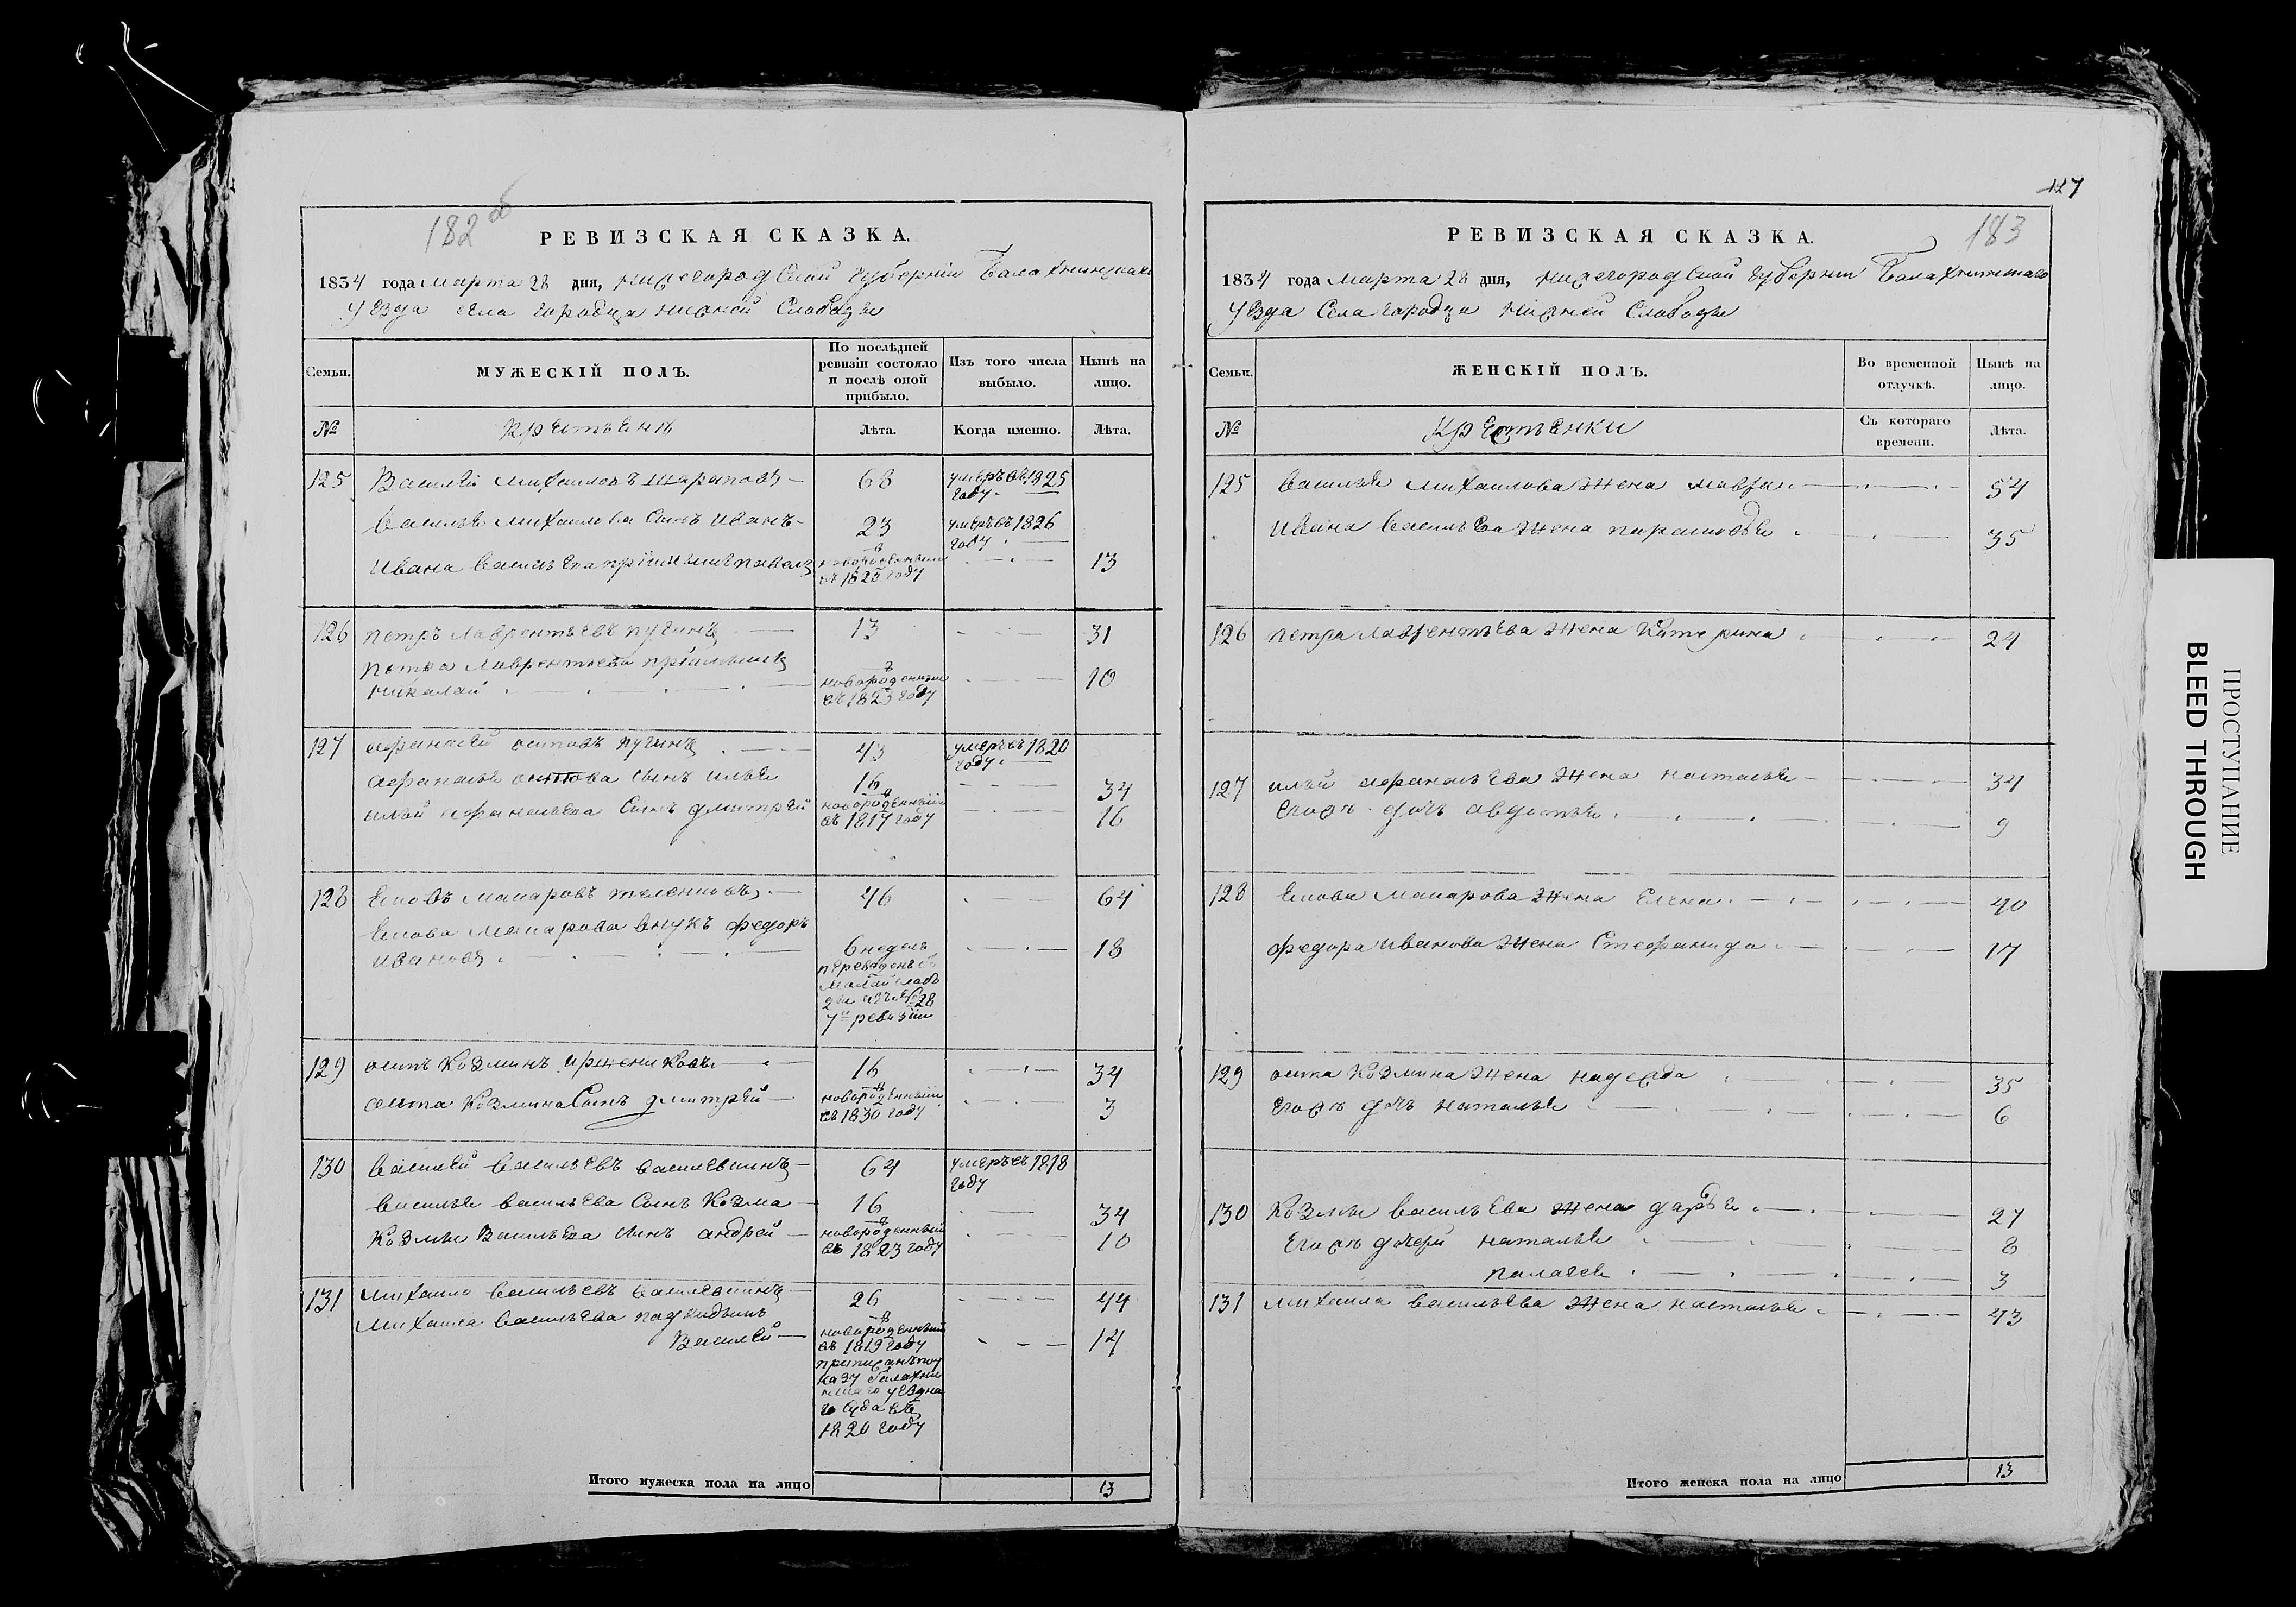 182 об
РЕВИЗСКАЯ СКАЗКА.
1834 года марта 28 дня, нижегородской губернии Балахнинскаго
уезда села городца нижней слободы
Семьи.
МУЖЕСКІЙ ПОЛЪ.
По послѣдней ревизіи состояло и послѣ оной прибыло.
Изъ того числа выбыло.
Нынѣ на лицо.
№
крестьени
Лѣта.
Когда именно.
Лѣта.
125 Василей михаиловъ шараповъ 68 умеръ въ 1825 году
василья михаилова сынъ иванъ 23 умеръ въ 1826 году
ивана васильева приимышъ павелъ новорожденный 13
126 петръ лаврентьевъ пугинъ 13 31
петра лаврентьева приимышъ
николай новорожденный въ 1823 году 10
127 афанасей осиповъ пугинъ 43 умеръ въ 1820 году
афанасья осипова сынъ илья 16 34
ильи афанасьева сынъ дмитрей новорожденный въ 1817 году 16
128 макаровъ 46 64
макарова внукъ федоръ
ивановъ 6 недель 18
переведенъ съ
малой слободы изъ № 28
7й ревизіи
129 осипъ козминъ 16 34
осипа козмина сынъ дмитрей новорожденный въ 1830 году 3
130 василей васильевъ 64 умеръ въ 1818 году
василья васильева сынъ козма 16 34
козмы васильева сынъ андрей новорожденный въ 1823 году 10
131 михаило васильевъ 26 44
михаила васильева подкидышъ
василей новорожденный 14
въ 1819 году
приписанъ по у
казу балахни
нскаго уездна
го суда въ
1820 году
Итого мужеска пола на лицо 13
127
183
РЕВИЗСКАЯ СКАЗКА.
1834 года марта 28 дня, нижегородской губернии Балахнинскаго
уезда села городца нижней слободы
Семьи.
ЖЕНСКІЙ ПОЛЪ.
Во временной отлучкѣ.
Нынѣ на лицо.
№
крестьенки
Съ котораго времени.
Лѣта.
125 василья михаилова жена мавра 54
ивана васильева жена парасковья 35
126 петра лаврентьева жена катерина 24
127 ильи афанасьева жена наталья 34
ихъ дочь авдотья 9
128 макарова жена елена 40
федора иванова жена стефанида 17
129 осипа козмина жена надежда 35
ихъ дочь наталья 6
130 козмы васильева жена дарья 27
ихъ дочери наталья 8
палагея 3
131 михаила васильева жена наталья 43
Итого женска пола на лицо 13
ПРОСТУПАНИЕ
BLEED THROUGH